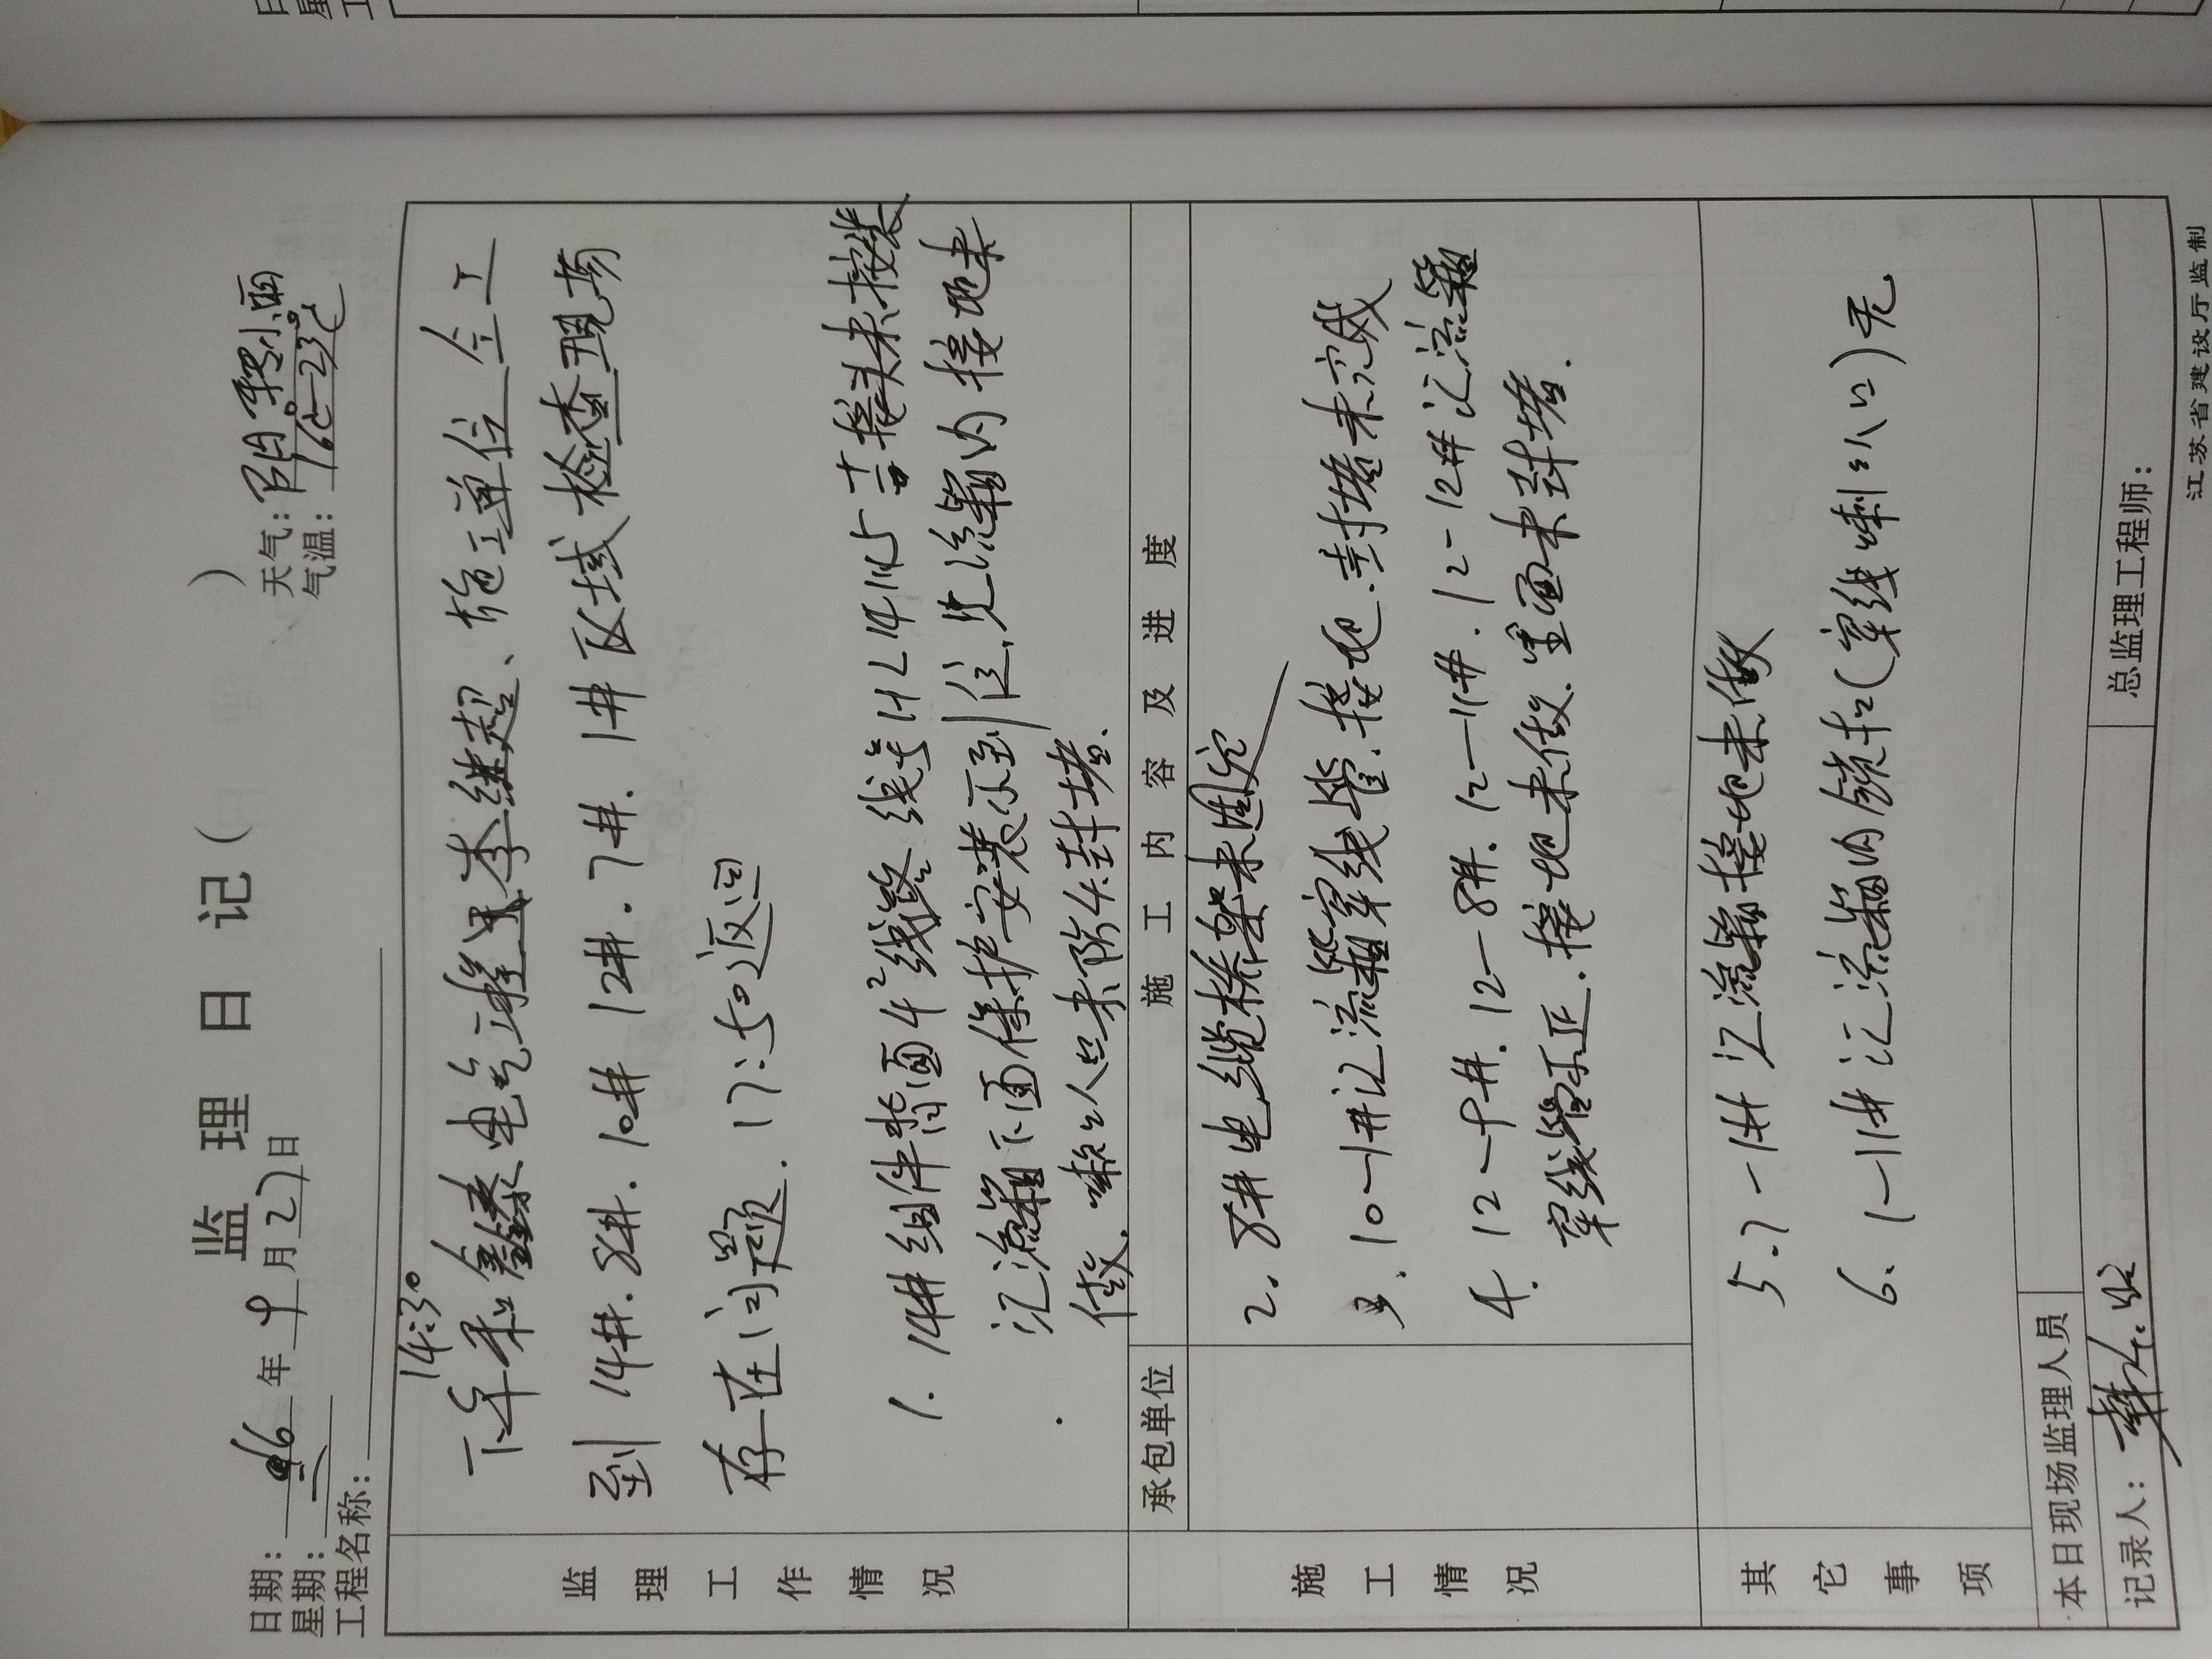 监理日记( )
日期: 16年9月27日 天气: 阴转小雨
星期: 二 气温: 16℃-23℃
工程名称:
监理工作情况
14:30
下午和鑫泰电气工程李继超、施工单位
到14#.8#.10#.12#.7#.1#区域检查现场
存在问题. 17:50返回
1. 14#组件背面4²线整线 接头未按装
汇流箱下面保护安装不到位,汇流箱内接地未
做. 未防火封堵.
承包单位 施工内容及进度
施工情况
2. 8#电缆桥架未固定
3. 10-1#汇流箱穿线管.接地.封堵未完成
4. 12-9#.12-8#.12-11#.12-12#汇流箱
穿线管不正.接地未做.全面未封堵.
其它事项
5. 7-1#汇流箱接地未做
6. 1-11#汇流箱内锁扣(穿线喇叭口)无
本日现场监理人员
记录人: 总监理工程师:
江苏省建设厅监制